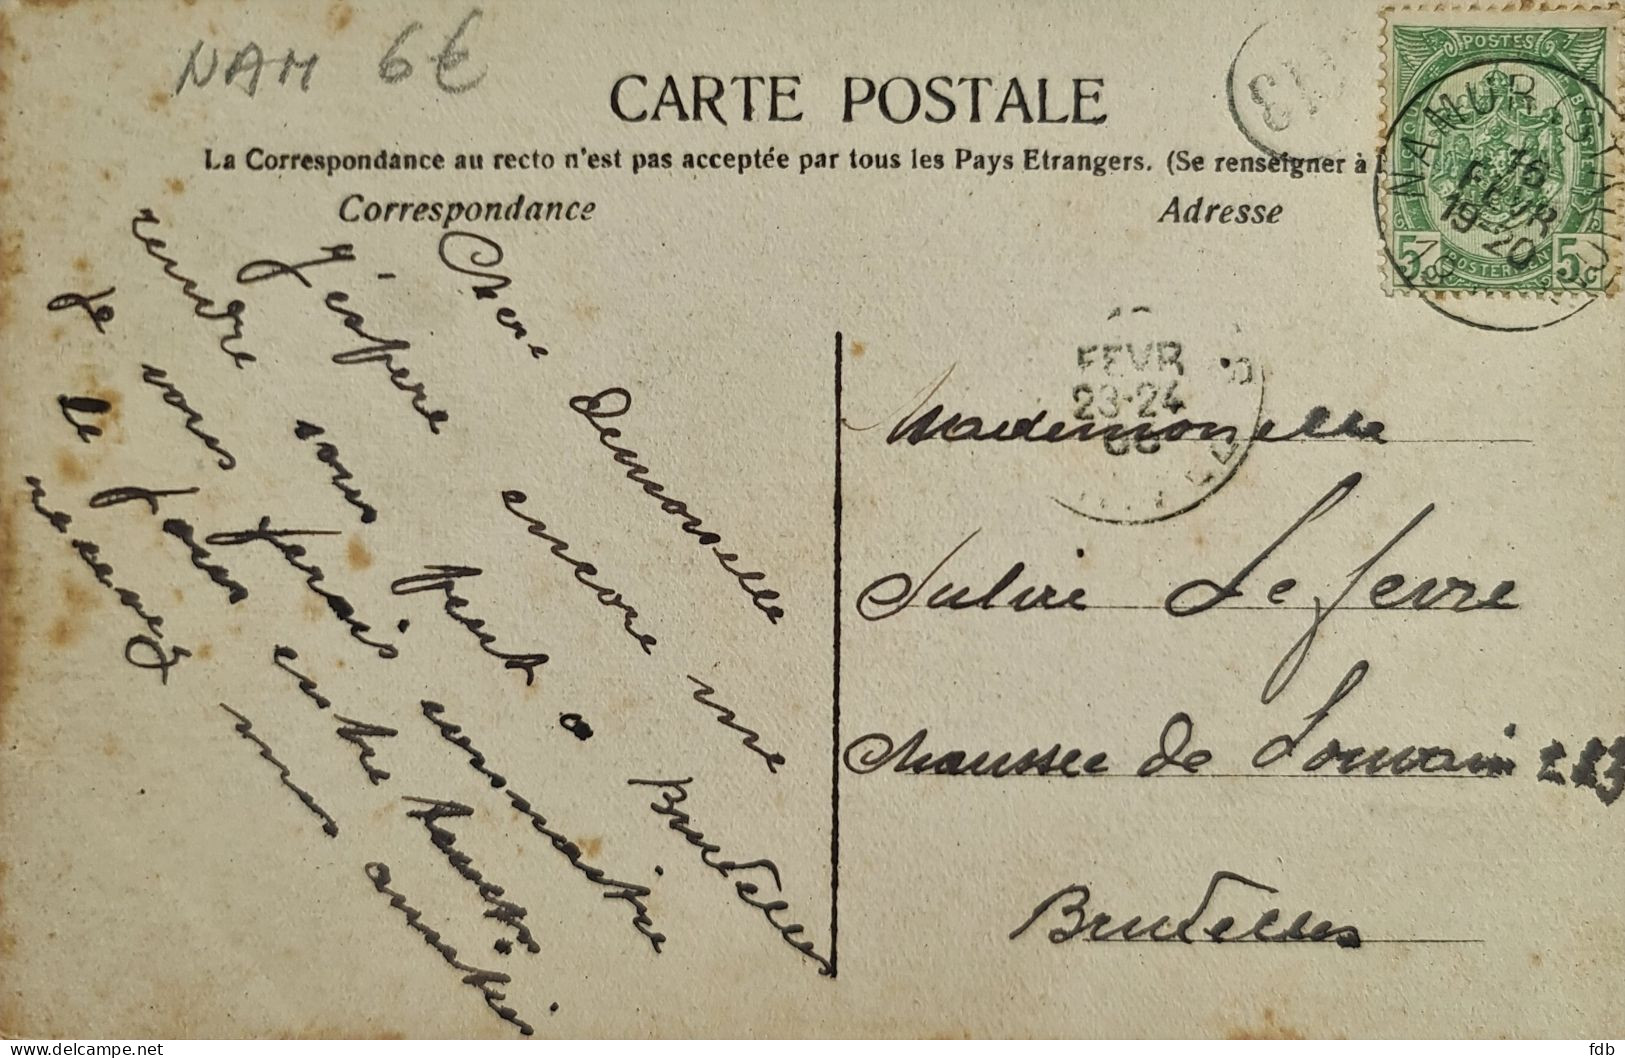 NAM 6€
CARTE POSTALE
La Correspondance au recto n'est pas acceptée par tous les Pays Etrangers. (Se renseigner à l
Correspondance
Adresse
POSTES
5c 5c
POSTERIJEN
NAMUR (STATION)
16
FEVR
19-20
FEVR
23-24
Chere Demoiselle
J'espere encore une
rendre vous peut a Bruxelles
je vous ferais connaitre
le jour entre temps
recevez mes amities
Mademoiselle
Sulvie Lefevre
Chaussee de Louvain 223
Bruxelles
fdb
www.delcampe.net